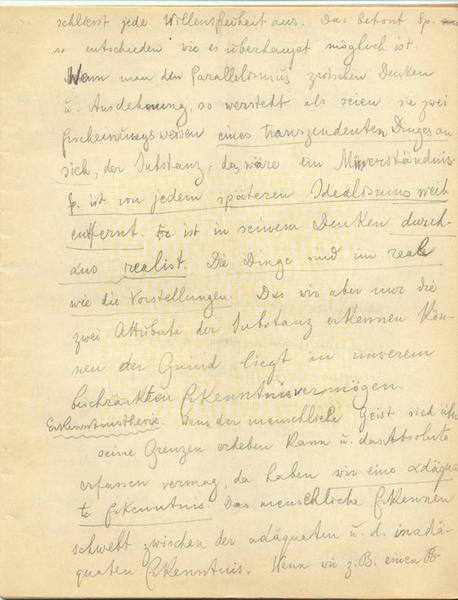 schliesst jede Willensfreiheit aus. Das betont Sp.
so entschieden wie es überhaupt möglich ist.
Wenn man den Parallelismus zwischen Denken
u. Ausdehnung, so versteht als seien sie zwei
Erscheinungsweisen eines transzendenten Dinges an
sich, der Substanz, das wäre ein Missverständnis.
Sp. ist von jedem späteren Idealismus weit
entfernt. Er ist in seinem Denken durch-
aus realist. Die Dinge sind im real
wie die Vorstellungen. Das wir aber nur die
zwei Attribute der Substanz erkennen kön-
nen der Grund liegt in unserem
beschränkten Erkenntnisvermögen.
Erkenntnistheorie. Wenn der menschliche Geist sich über
seine Grenzen erheben kann u. das Absolute
erfassen vermag, da haben wir eine adäqua-
te Erkenntnis. Das menschliche Erkennen
schwebt zwischen der adäquaten u. d. inadä-
quaten Erkenntnis. Wenn wir z.B. einen